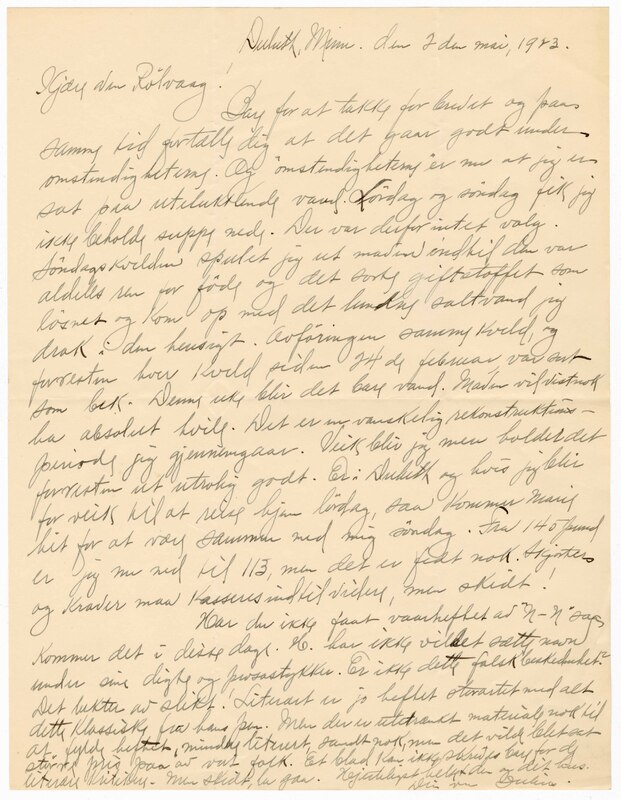 Duluth, Minn. den 2den mai, 1923.
Kjære ven Rølvaag!
Bare for at takke for brevet og paa
samme tid fortælle dig at det gaar godt under
omstendigheterne. Og "omstendigheterne" er nu at jeg er
sat paa utelukkende vand. Lørdag og søndag fik jeg
ikke beholde suppe nede. Der var derfor intet valg.
Søndagskvelden spulet jeg ut maven indtil den var
aldeles ren for føde og det sorte giftstoffet som
løsnet og kom op med det lunkne saltvand jeg
drak i den hensigt. Avføringen samme kveld, og
forresten hver kveld siden 24de februar, var sort
som bek. Denne uke blir det bare vand. Maven vil vistnok
ha absolut hvile. Det er en vanskelig rekonstruktions-
periode jeg gjennemgaar. Veik blir jeg men holder det
forresten ut utrolig godt. Er i Duluth og hvis jeg blir
for veik til at reise hjem lørdag, saa kommer Marie
hit for at være sammen med mig søndag. Fra 140 pund
er jeg nu ned til 113, men det er fedt nok. Skjorter
og kraver maa kasseres indtil videre, men skidt!
Har du ikke faat vaarheftet av "N-N" saa
kommer det i disse dage. H. har ikke villet sætte navn
under sine digte og prosastykker. Er ikke dette falsk beskedenhet?
Det lukter av slikt. Literært er jo heftet storartet med alt
dette klassiske fra hans pen. Men der er utelukket materiale nok til
at fylde heftet, mindre literært, sandt nok, men det vilde blet sat
større pris paa av vort folk. Et blad kan ikke skrives bare for de
literære kritikere. Men skidt, la gaa. Hjerteligst helset den og dit hus.
Din ven